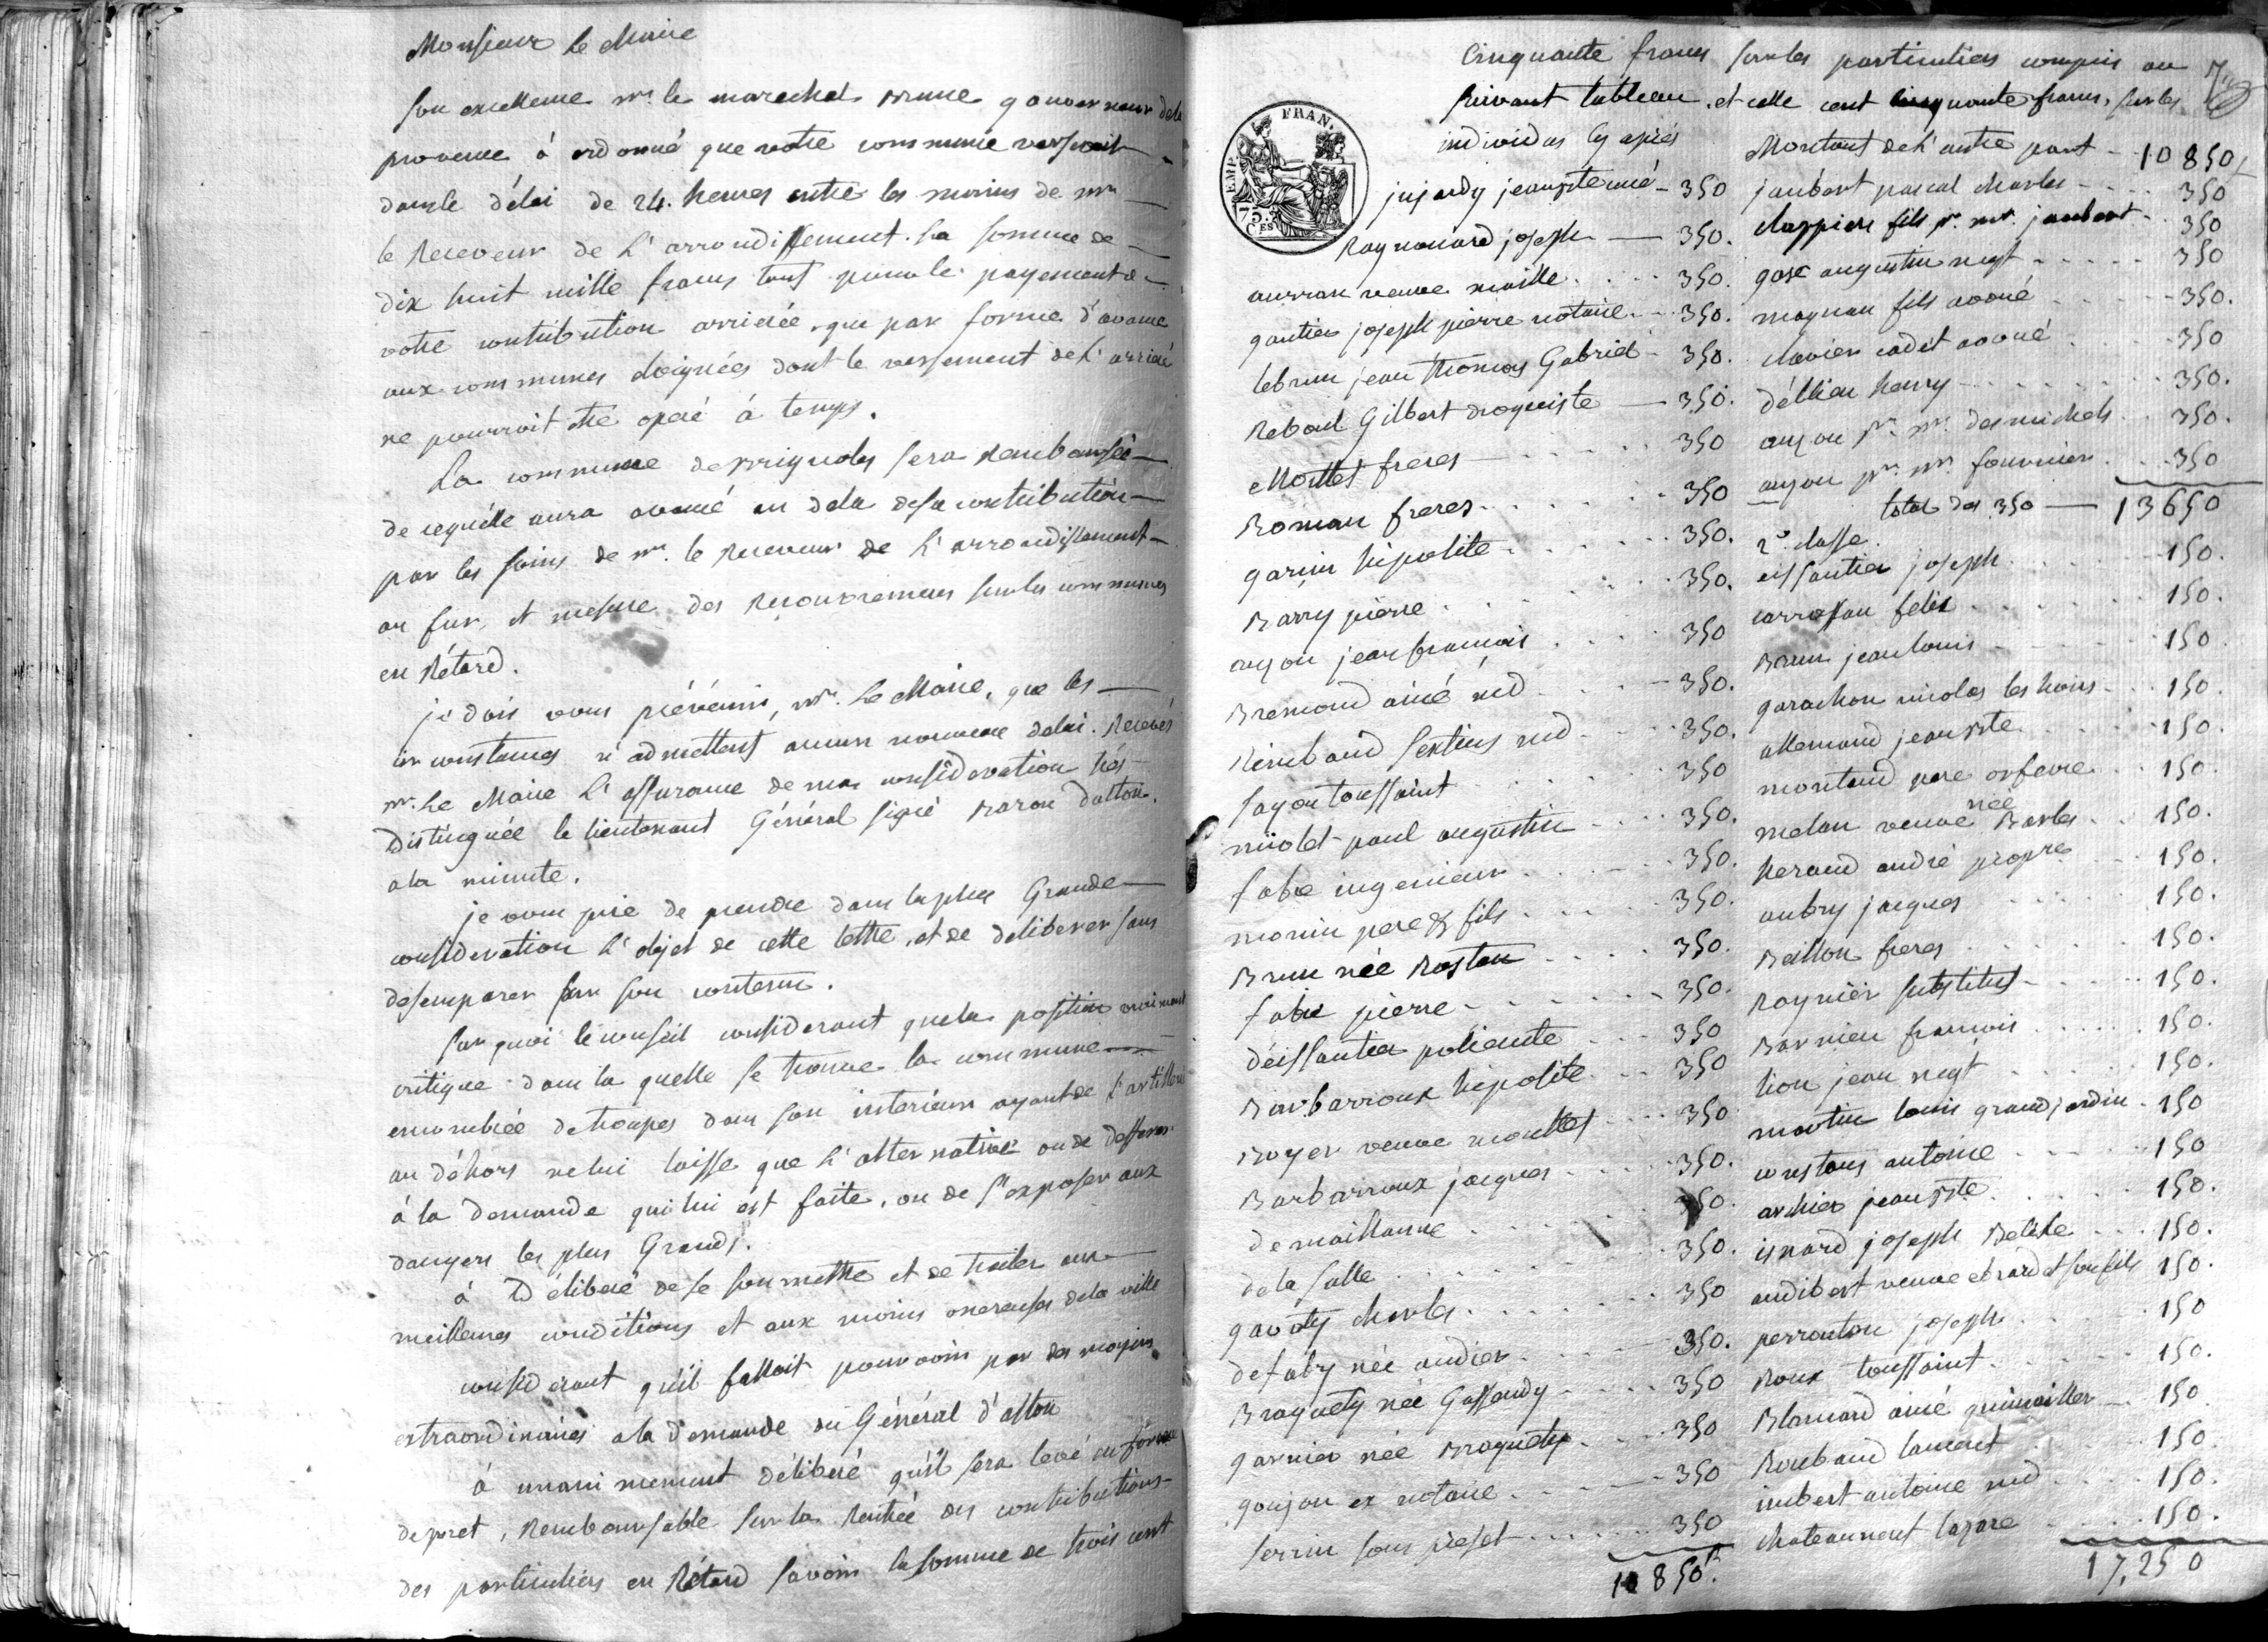 Monsieur le Maire
son excellence mr. le marechal Brune gouverneur dela
provence à ordonné que votre commune verseroit
dans le délai de 24. heures entre les mains de mr
le Receveur de l'arrondissement la somme de
dix huit mille francs tant pour le payement de
votre contribution arrierée, que par forme d'avance
aux communes eloignées dont le versement de l'arrieré
ne pourroit etre operé à temps.
La commune de Brignoles sera Remboursée
de ce qu'elle aura avancé au dela de sa contribution
par les soins de mr. le Receveur de l'arrondissement
au fur, et mesure des Recouvremens sur les communes
en Rétard.
je dois vous prévénir, mr. Le Maire, que les
circonstances n'admettent aucun nouveau délai. Recevés
mr. Le Maire l'assurance de ma considération trés
Distinguée le lieutenant Général signé Baron Dalton.
a la minute.
je vous prie de prendre dans la plus Grande
considération l'objet de cette lettre, et de deliberer sans
desemparer sur son contenu.
Sur quoi le conseil considerant que la position vraiment
critique dans la quelle se trouve la commune
encombrée de troupes dans son interieur ayant de l'artillerie
au déhors ne lui laisse que l'alternative ou de defferer
à la demande qui lui est faite, ou de s'exposer aux
dangers les plus Grands.
à Déliberé de se soumettre et de traiter aux
meilleures conditions et aux moins onereuses dela ville
considérant qu'il falloit pourvoir par des moyens
extraordinaires a la demande du Général d'alton
à unanimement déliberé qu'il sera levé en forme
de pret, Remboursable sur la Rentrée des contributions
des particuliers en Rétard savoir la somme de trois cent
Cinquante francs sur les particuliers compris au
suivant tableau, et celle cent cinquante francs, sur les
individus cy après
EMP. FRAN.
75. Ces
jujardy jean Bte ainé - 350
Raynouard joseph — 350.
aurran veuve maille . . . 350.
gautier joseph pierre notaire. - 350.
lebrun jean thomas Gabriel - 350.
Reboul Gilbert droguiste — 350.
Mottet freres - - - 350
Roman freres. . . . 350
garin hipolite . . . 350.
Barry pierre . . . 350.
anjou jean francois . . . 350
Bremond ainé nd . . . 350.
Rimbaud sextius nd . . . 350.
sayou toussaint . . . 350
niolet paul augustin . . . 350.
fabre ingenieur . . . 350.
monin pere & fils . . . 350.
Brun née Rostan . . . 350.
fabre pierre . . . 350.
déissautier policarte . . . 350
Barbarroux hipolite . . . 350
Boyer veuve mouttet . . . 350
Barbarroux jacques . . . 350.
demaillanne . . . 350.
de la salle . . . 350.
gavoty charles . . . 350
defaby née audier . . . 350.
Braquety née Gassendy . . . 350
garnier née Braquety . . . 350
goujon ex notaire . . . 350
serrin sous préfet . . . 350
10850.f
Montant de l'autre part - 10850f
jaubert pascal charles - - - 350
clappier fils pr. mr. jaubert - 350
gase augustin negt - - - 350
maynau fils avoué - - - 350.
clavier cadet avoué . . . 350
déblieu henry - - - 350.
anjou pr. mr. desmichels . . 350.
anjou pr. mr. fournier . . . 350
total des 350 — 13650
2e. classe.
eissautier joseph . . . 150.
carrassau felix . . . 150.
Brun jean louis . . . 150.
garachon nicolas les hoirs . . 150.
allemand jean Bte . . . 150.
montaud pere orfevre . . 150.
melan veuve née Barles . . 150.
heraud andré propre . . 150.
aubry jacques . . . 150.
Beillon freres . . . 150.
Raynier substitut . . . 150.
Barnieu francois . . . 150.
lion jean negt . . . 150.
martin louis grand jardin . 150
constans antoine . . . 150
archier jean Bte . . . 150.
isnard joseph Belille . . . 150.
audibert veuve ebrard et son fils 150.
perrouton joseph . . . 150
Roux toussaint . . . 150.
Blancard ainé quincailler — 150
Roubaud laurent . . . 150.
imbert antoine nd . . . 150.
chateauneuf lazare . . . 150.
17,250